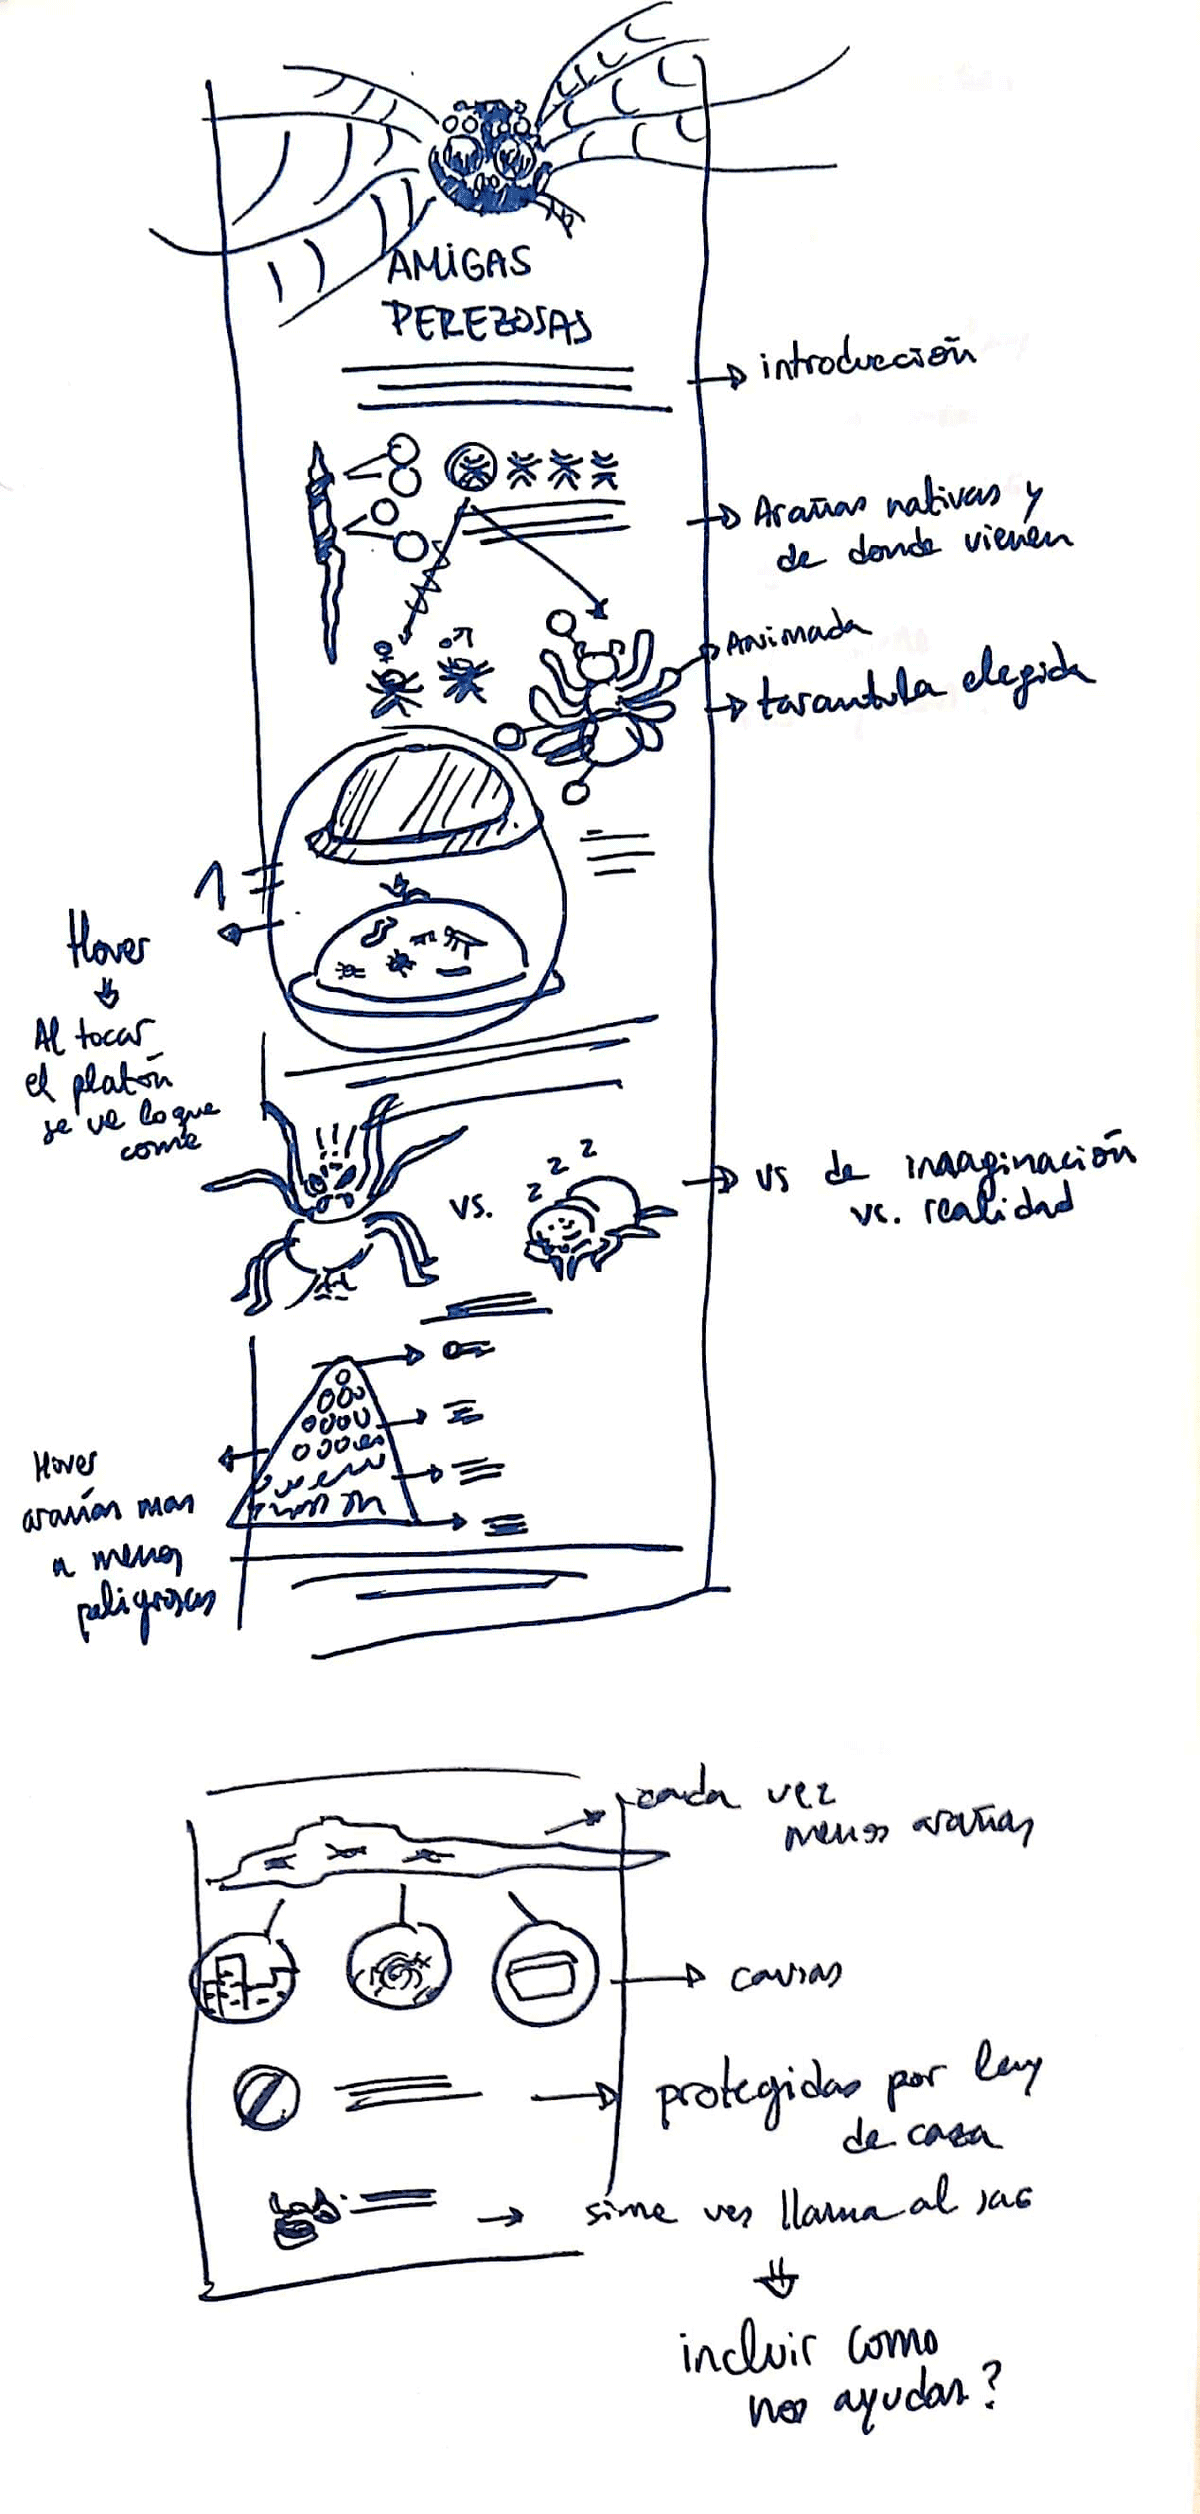 AMIGAS
PEREZOSAS
introducción
Arañas nativas y
de donde vienen
♀
♂
Animada
tarantula elegida
1
Hover
Al tocar
el platón
se ve lo que
come
!!
vs.
z z z
vs de imaginación
vs. realidad
Hover
arañas mas
a menos
peligrosas
cada vez
menos arañas
causas
protegidas por ley
de caza
si me ves llama al sag
incluir como
nos ayudan?